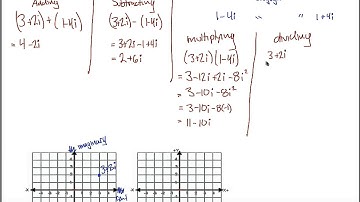 Adding
(3+2i)+(1-4i)
= 4-2i
Subtracting
(3+2i)-(1-4i)
= 3+2i-1+4i
= 2+6i
1-4i " " 1+4i
multiplying
(3+2i)(1-4i)
= 3-12i+2i-8i²
= 3-10i-8i²
= 3-10i-8(-1)
= 11-10i
dividing
3+2i
imaginary
3+2i
real